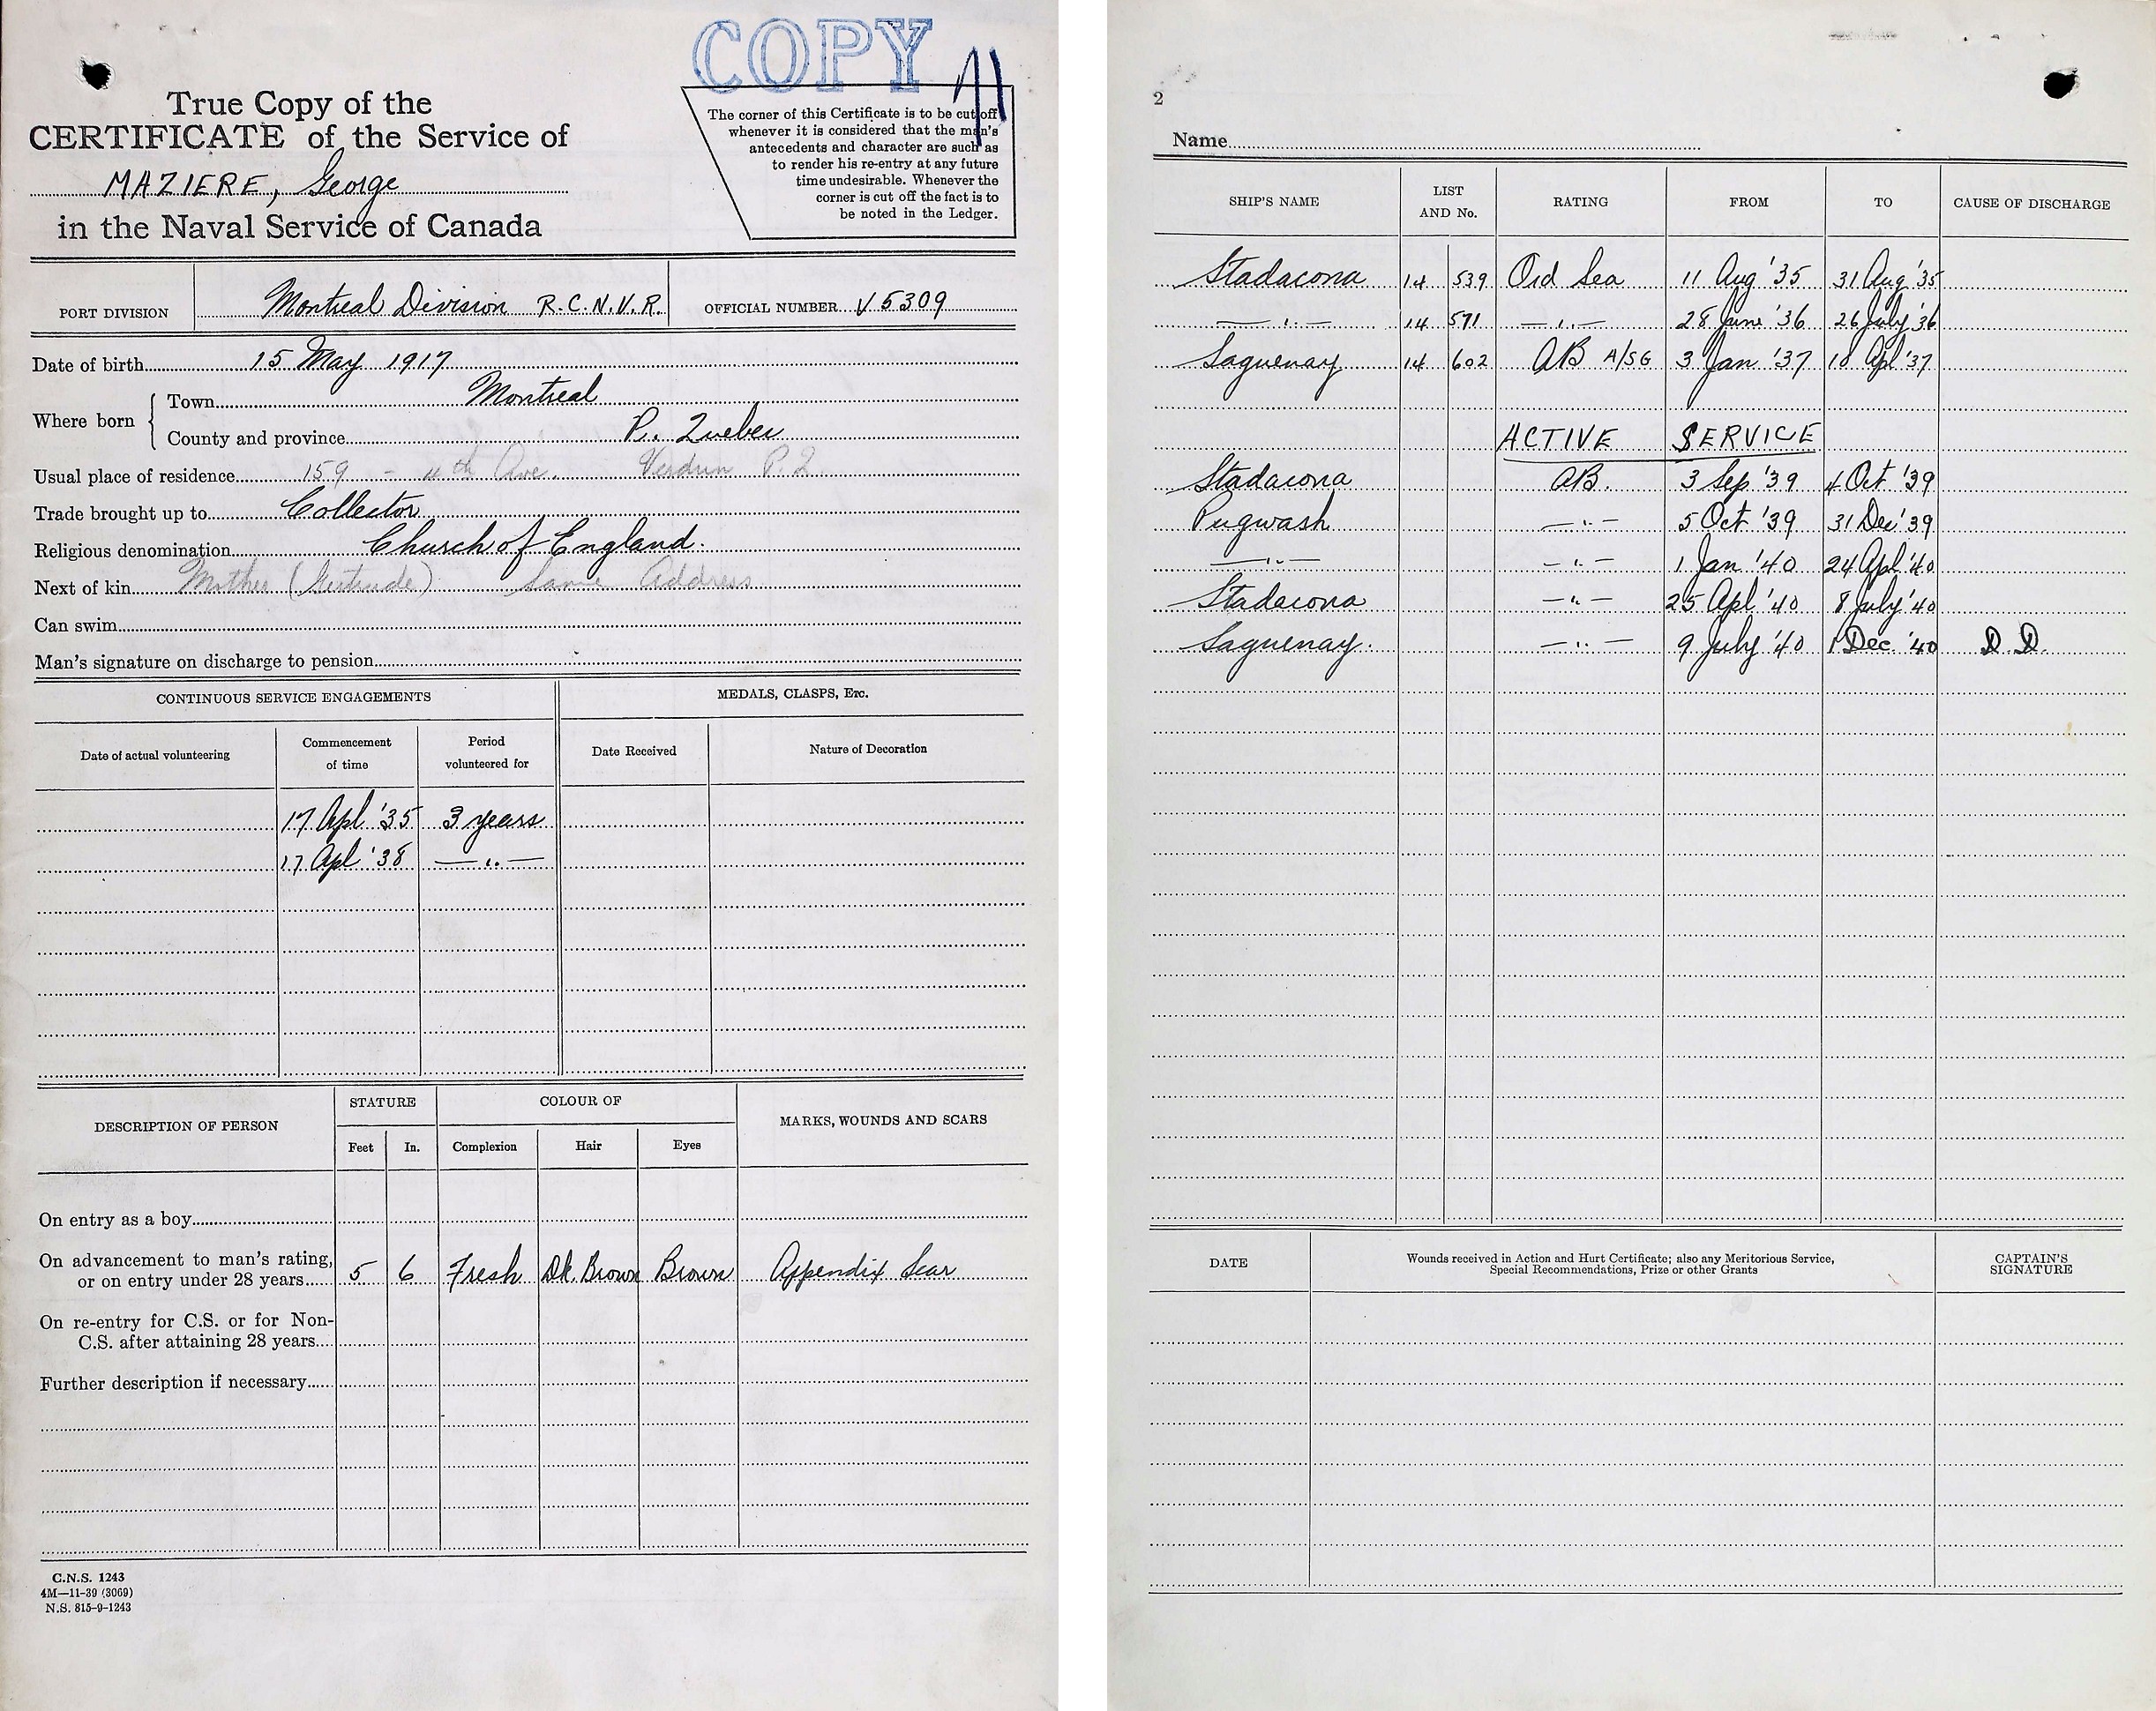 COPY
True Copy of the
CERTIFICATE of the Service of
MAZIERE, George
in the Naval Service of Canada
The corner of this Certificate is to be cut off
whenever it is considered that the man's
antecedents and character are such as
to render his re-entry at any future
time undesirable. Whenever the
corner is cut off the fact is to
be noted in the Ledger.
PORT DIVISION Montreal Division R.C.N.V.R. OFFICIAL NUMBER V5309
Date of birth 15 May 1917
Where born Town Montreal
County and province P. Quebec
Usual place of residence 159 - 4th Ave. Verdun P.Q.
Trade brought up to Collector
Religious denomination Church of England.
Next of kin Mother (Gertrude) Same Address
Can swim
Man's signature on discharge to pension
CONTINUOUS SERVICE ENGAGEMENTS MEDALS, CLASPS, Etc.
Date of actual volunteering Commencement of time Period volunteered for Date Received Nature of Decoration
17 Apl '35 3 years
17 Apl '38 — " —
DESCRIPTION OF PERSON STATURE COLOUR OF MARKS, WOUNDS AND SCARS
Feet In. Complexion Hair Eyes
On entry as a boy
On advancement to man's rating,
or on entry under 28 years 5 6 Fresh Dk. Brown Brown Appendix Scar
On re-entry for C.S. or for Non-
C.S. after attaining 28 years
Further description if necessary
C.N.S. 1243
4M—11-39 (3069)
N.S. 815-9-1243
2
Name
SHIP'S NAME LIST AND No. RATING FROM TO CAUSE OF DISCHARGE
Stadacona 14 539 Ord Sea 11 Aug '35 31 Aug '35
— " — 14 571 — " — 28 June '36 26 July '36
Saguenay 14 602 AB A/SG 3 Jan '37 18 Apl '37
ACTIVE SERVICE
Stadacona AB. 3 Sep '39 4 Oct '39
Pugwash — " — 5 Oct '39 31 Dec '39
— " — — " — 1 Jan '40 24 Apl '40
Stadacona — " — 25 Apl '40 8 July '40
Saguenay. — " — 9 July '40 1 Dec. '40 D.D.
DATE Wounds received in Action and Hurt Certificate; also any Meritorious Service,
Special Recommendations, Prize or other Grants CAPTAIN'S SIGNATURE